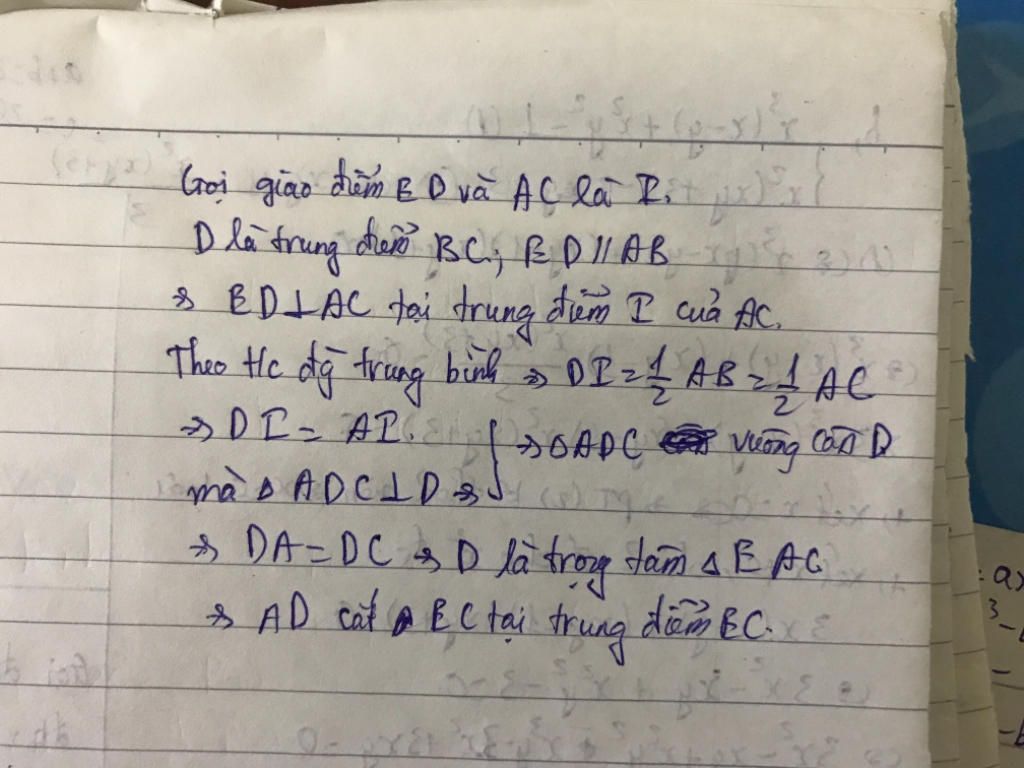 Gọi giao điểm ED và AC là I.
D là trung điểm BC; ED // AB
=> ED ⊥ AC tại trung điểm I của AC.
Theo t/c đg trung bình => DI = 1/2 AB = 1/2 AC
=> DI = AI. } => Δ ADC vuông cân D
mà Δ ADC ⊥ D =>
=> DA = DC => D là trọng tâm Δ EAC
=> AD cắt EC tại trung điểm EC.